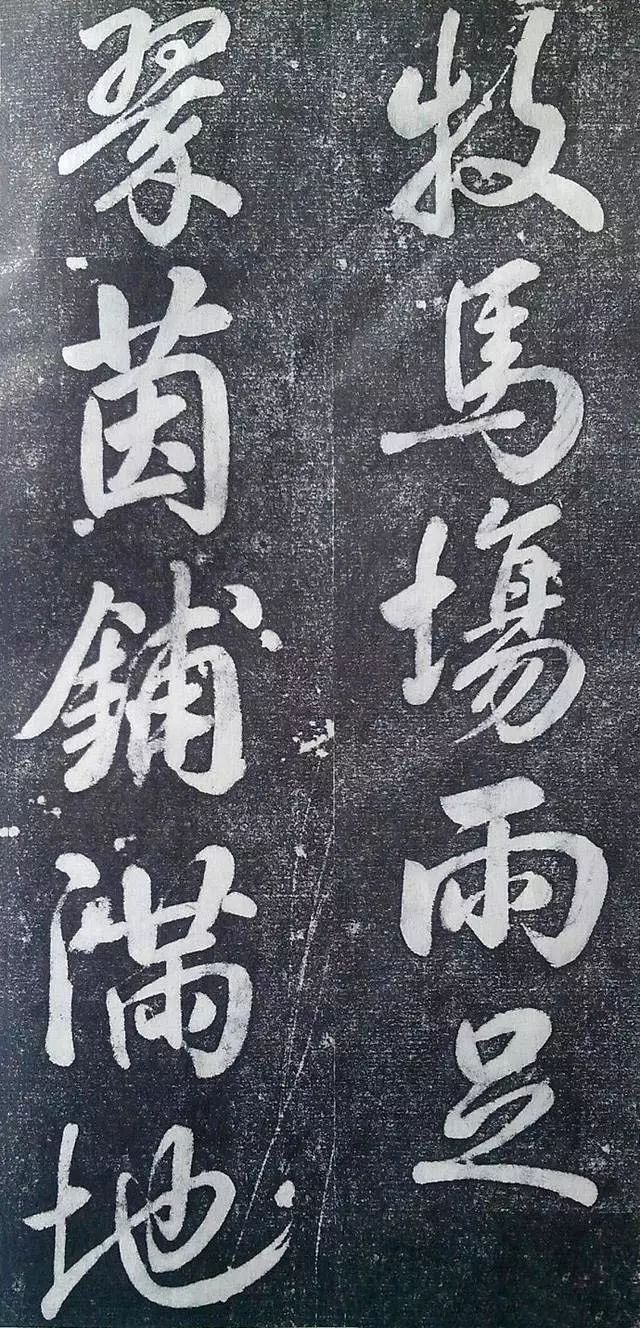 牧馬場雨足
翠茵鋪滿地